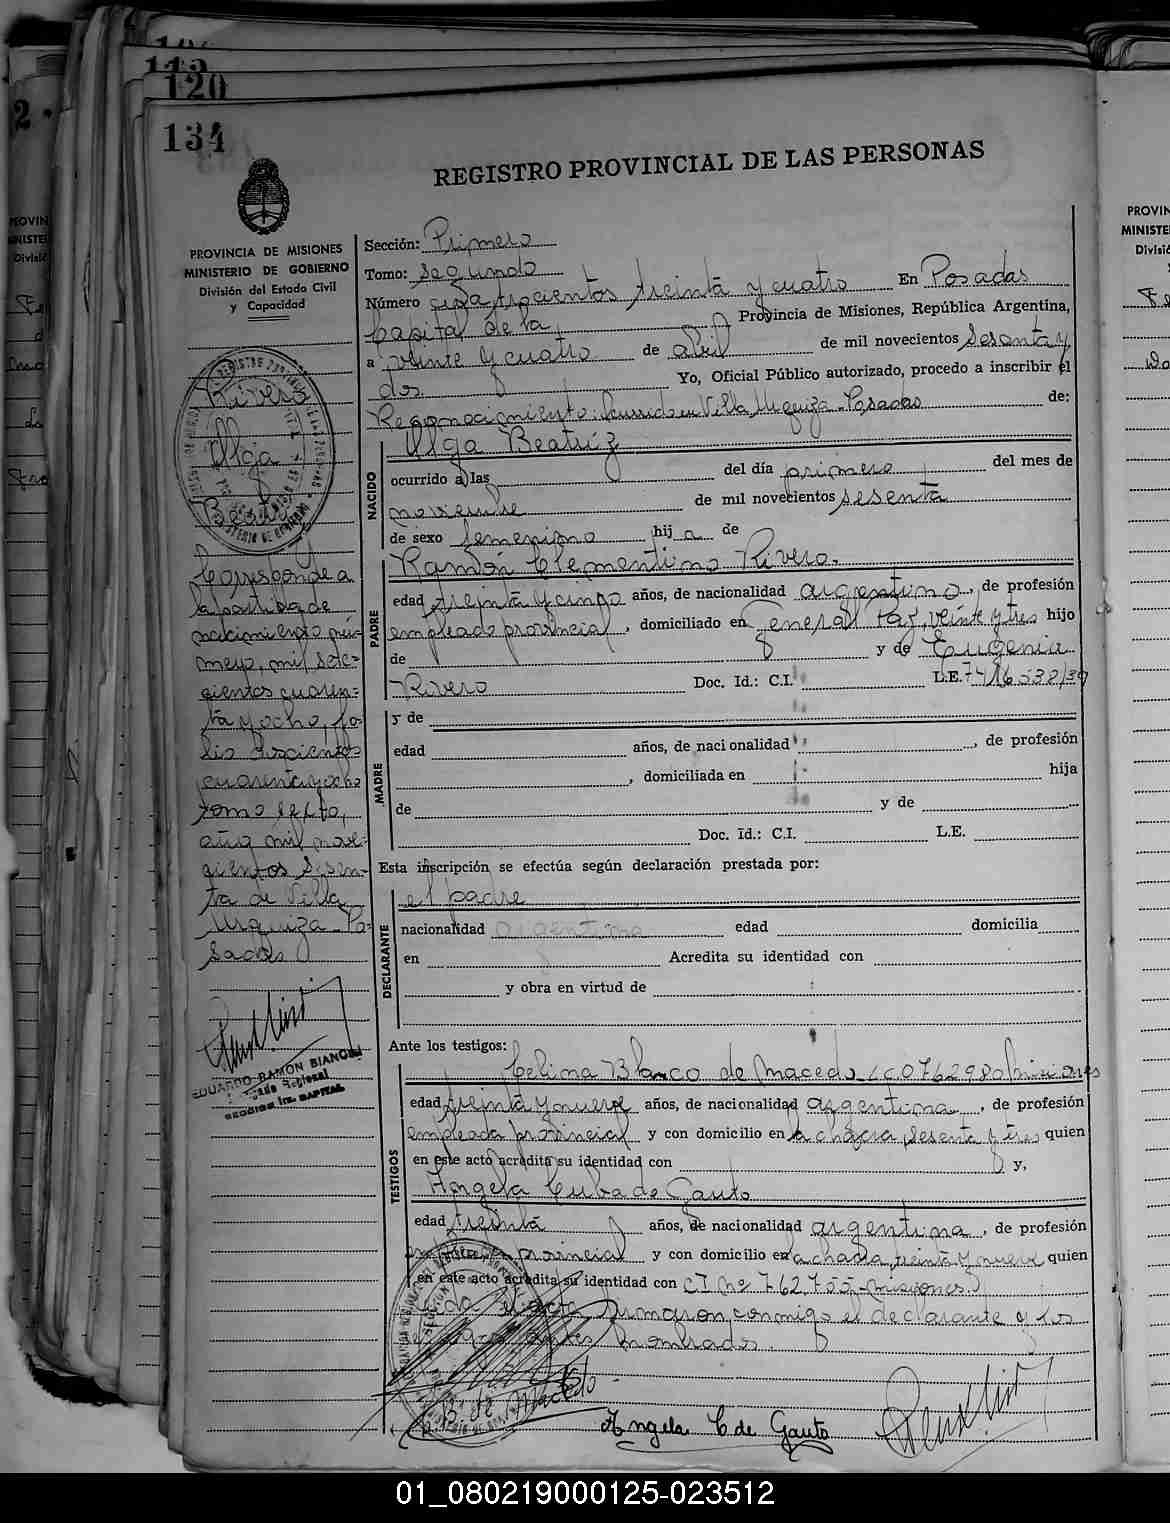 134
120
REGISTRO PROVINCIAL DE LAS PERSONAS
PROVINCIA DE MISIONES
MINISTERIO DE GOBIERNO
División del Estado Civil
y Capacidad
Rivero
Olga
Beatriz
Corresponde a
la partida de
nacimiento nú-
mero, mil sete-
cientos cuaren-
ta y ocho, fo-
lio doscientos
cuarenta y ocho
tomo sexto,
año mil nove-
cientos sesen-
ta de Villa
Urquiza-Po-
sadas
EDUARDO RAMÓN BIANCHI
Sección: Primero
Tomo: segundo
Número cuatrocientos treinta y cuatro En Posadas
Capital de la Provincia de Misiones, República Argentina,
a veinte y cuatro de abril de mil novecientos sesenta y
dos. Yo, Oficial Público autorizado, procedo a inscribir el
Reconocimiento: ocurrido en Villa Urquiza-Posadas de:
NACIDO
Olga Beatriz
ocurrido a las del día primero del mes de
noviembre de mil novecientos sesenta
de sexo femenino hija de
PADRE
Ramón Clementino Rivero.
edad treinta y cinco años, de nacionalidad argentino, de profesión
empleado provincial, domiciliado en General Paz, veinte y tres hijo
de y de Eugenia
Rivero Doc. Id.: C.I. L.E.
MADRE
y de
edad años, de nacionalidad , de profesión
, domiciliada en hija
de y de
Doc. Id.: C.I. L.E.
Esta inscripción se efectúa según declaración prestada por:
DECLARANTE
el padre
nacionalidad argentino edad domicilia
en Acredita su identidad con
y obra en virtud de
Ante los testigos:
TESTIGOS
Celina Blanco de Macedo LC0762980 Misiones
edad treinta y nueve años, de nacionalidad argentina, de profesión
empleada provincial y con domicilio en la chacra, sesenta y tres quien
en este acto acredita su identidad con y,
Angela Cuba de Gauto
edad treinta años, de nacionalidad argentina, de profesión
provincial y con domicilio en la chacra, treinta y nueve quien
en este acto acredita su identidad con CI nº 762.755-misiones.
acta firmaron conmigo el declarante y los
antes nombrados.
B. de Macedo
Angela C de Gauto
01_080219000125-023512